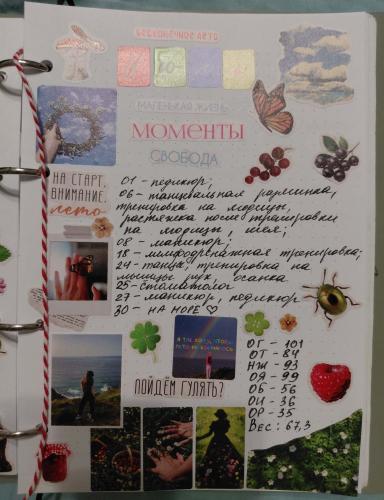 БЕСКОНЕЧНОЕ ЛЕТО
МАЛЕНЬКАЯ ЖИЗНЬ
МОМЕНТЫ
СВОБОДА
НА СТАРТ,
ВНИМАНИЕ,
лето
01 - педикюр;
06 - танцевальная разминка,
тренировка на ягодицы,
растяжка после тренировки
на ягодицы, шея;
08 - маникюр;
18 - лимфодренажная тренировка;
24 - танцы, тренировка на
мышцы рук, осанка
25 - стоматолог
27 - маникюр, педикюр
30 - НА МОРЕ ♡
ПОЙДЁМ ГУЛЯТЬ?
ОГ - 101
ОТ - 84
НЖ - 93
ОЯ - 99
ОБ - 56
ОИ - 36
ОР - 35
Вес: 67,3